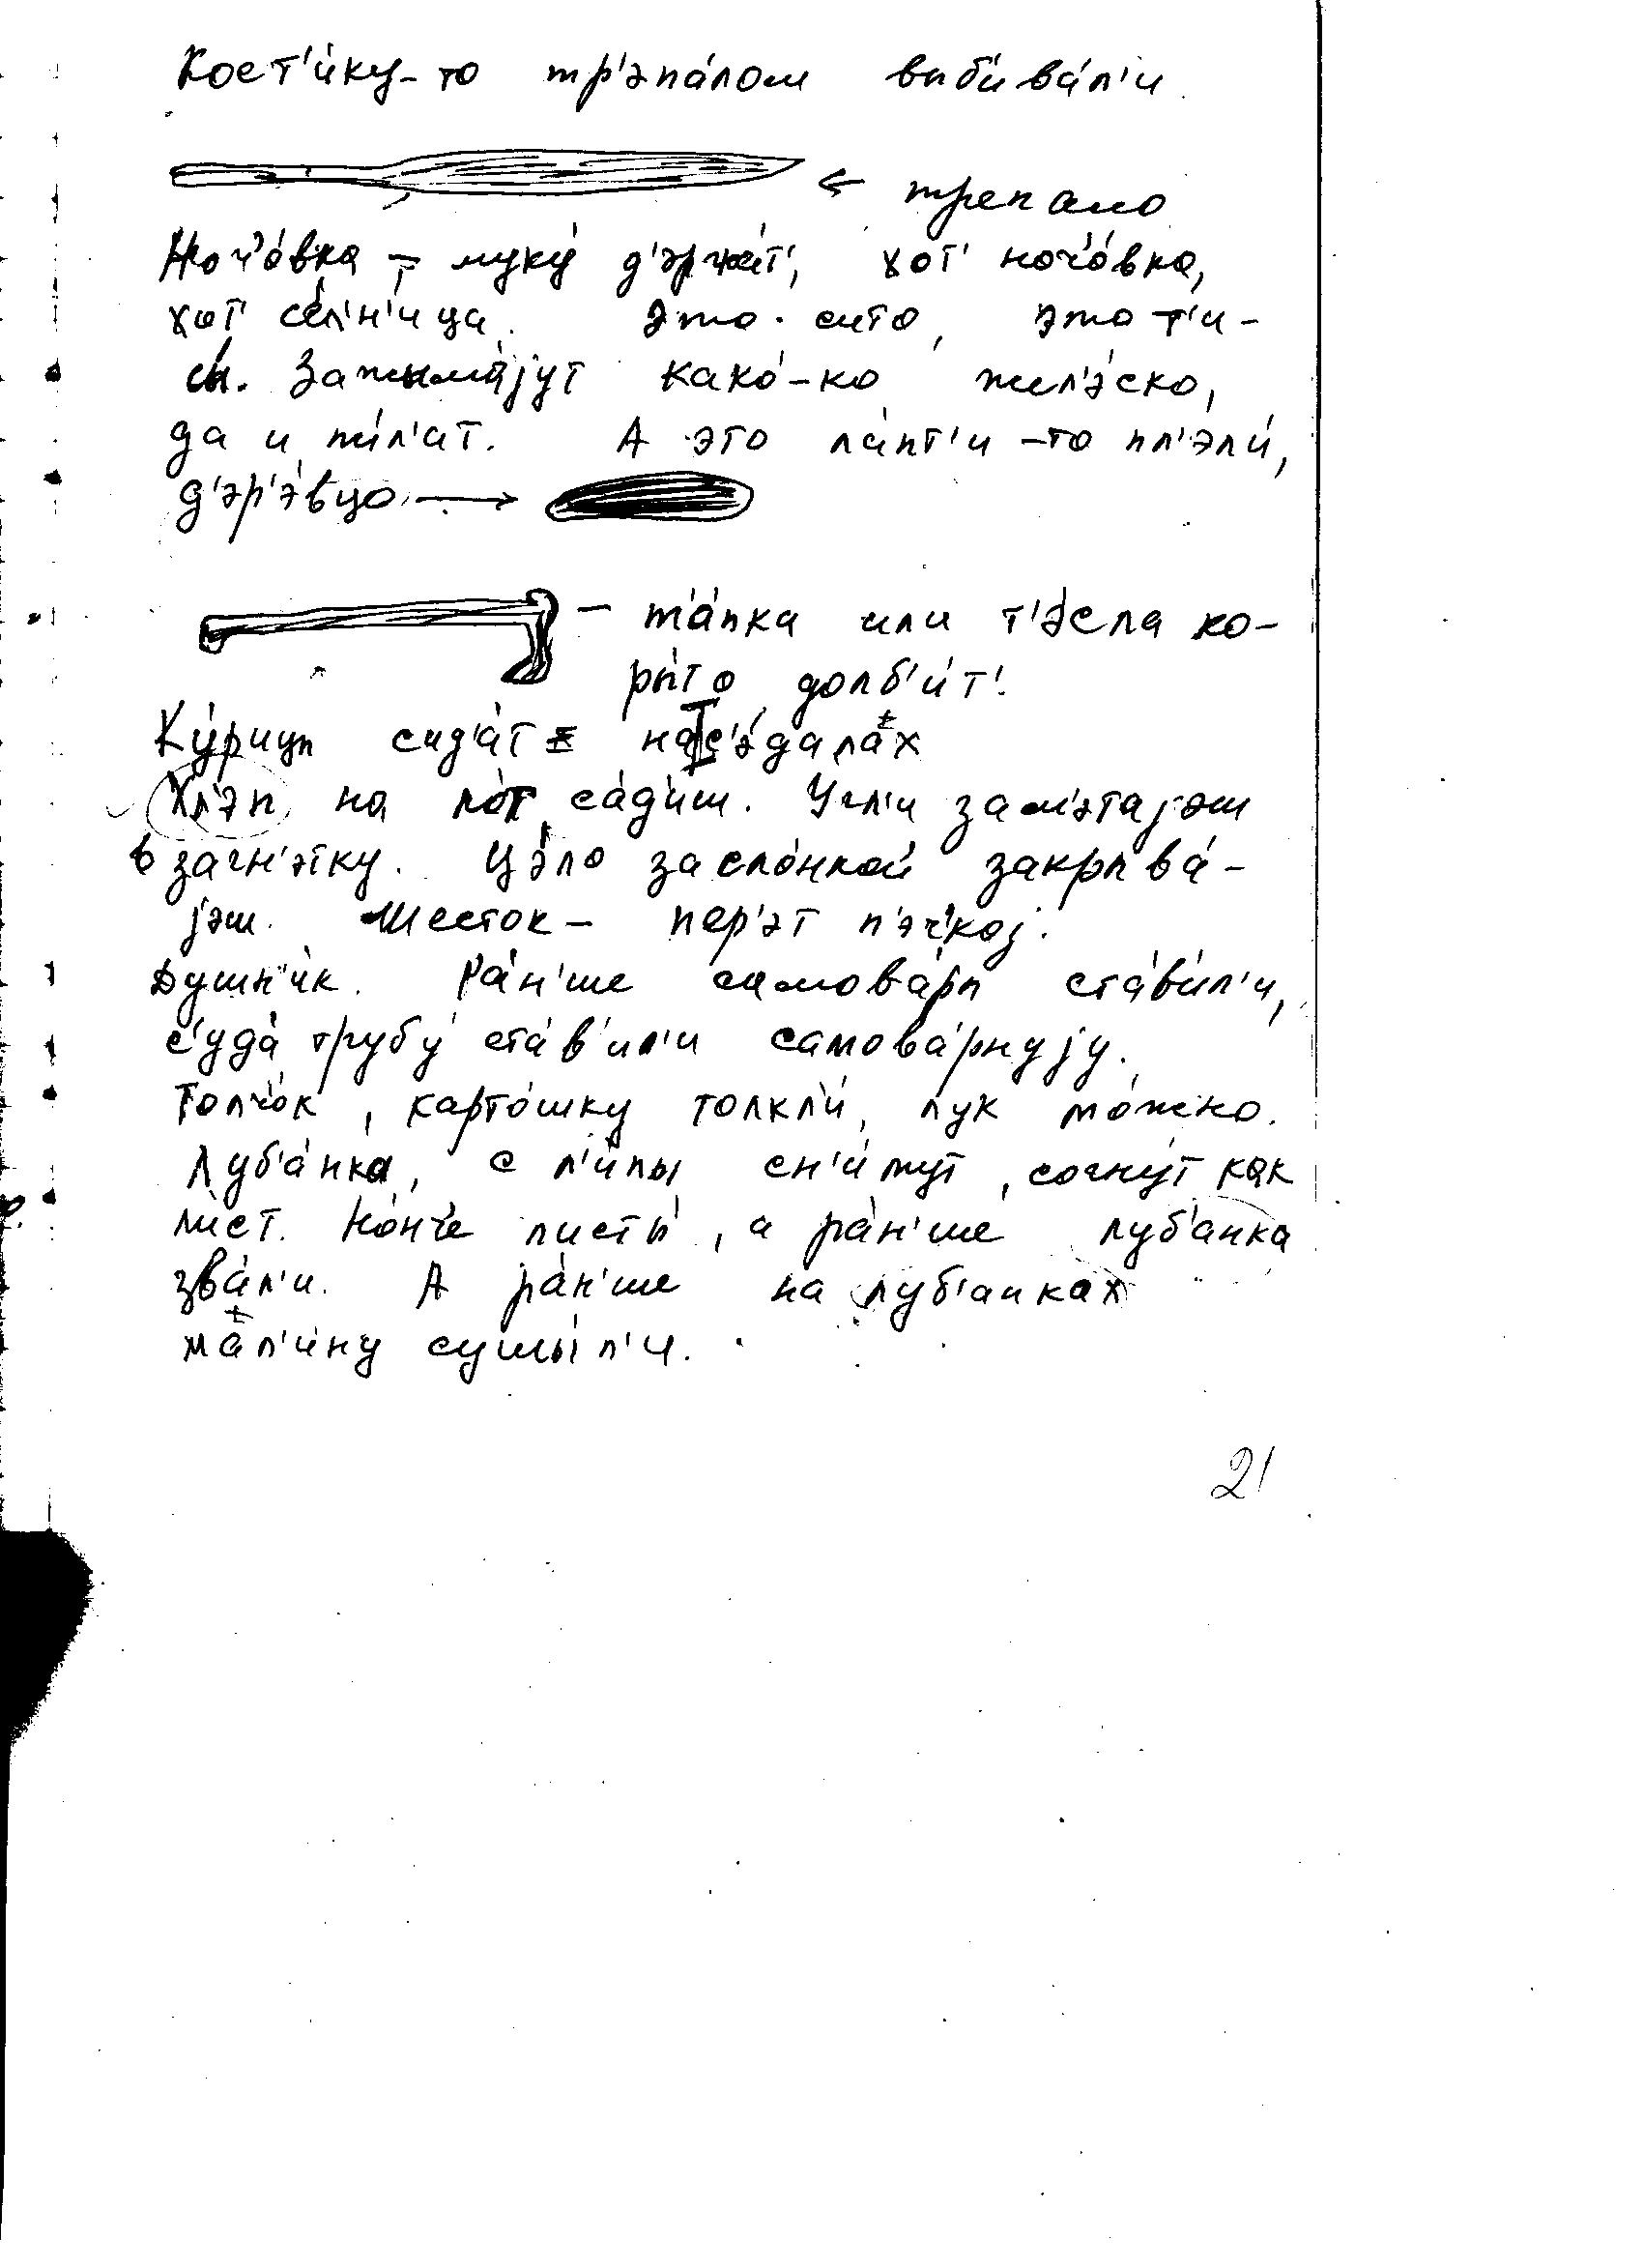 Кост'и́ку-то тр'эпа́лом выбива́л'и.
← трепало
Ноч'о́вка – муку́ д'эржа́т', хот' ноч'о́вка,
хот' се́л'н'ица. Это сито, это т'и-
сы́. Зажыма́јут како́-ко жыл'э́ско,
да и п'и́л'ат. А это ла́пт'и-то пл'эли́,
д'эр'э́вцо →
– тя́пка или т'э́сла ко-
ры́то долб'и́т'.
Ку́рицы сид'а́т на с'э́далах
Хл'эп на по́т са́д'иш. Угл'и зам'эта́јэш
в загн'э́тку. Цэло́ засло́нкой закрыва́-
јэш. Шесток – пер'эт п'э́ч'кој.
Душн'и́к. Ра́н'ше самова́ры ста́вил'и,
с'уда́ трубу́ ста́в'ил'и самова́рнују.
Толчо́к, карто́шку толкли́, лук мо́жно.
Луб'а́нка, с л'и́пы сн'и́мут, согну́т как
лист. Но́нче листы́, а ра́н'ше луб'анка
зва́л'и. А ра́н'ше на луб'анках
мал'и́ну сушы́л'и.
21